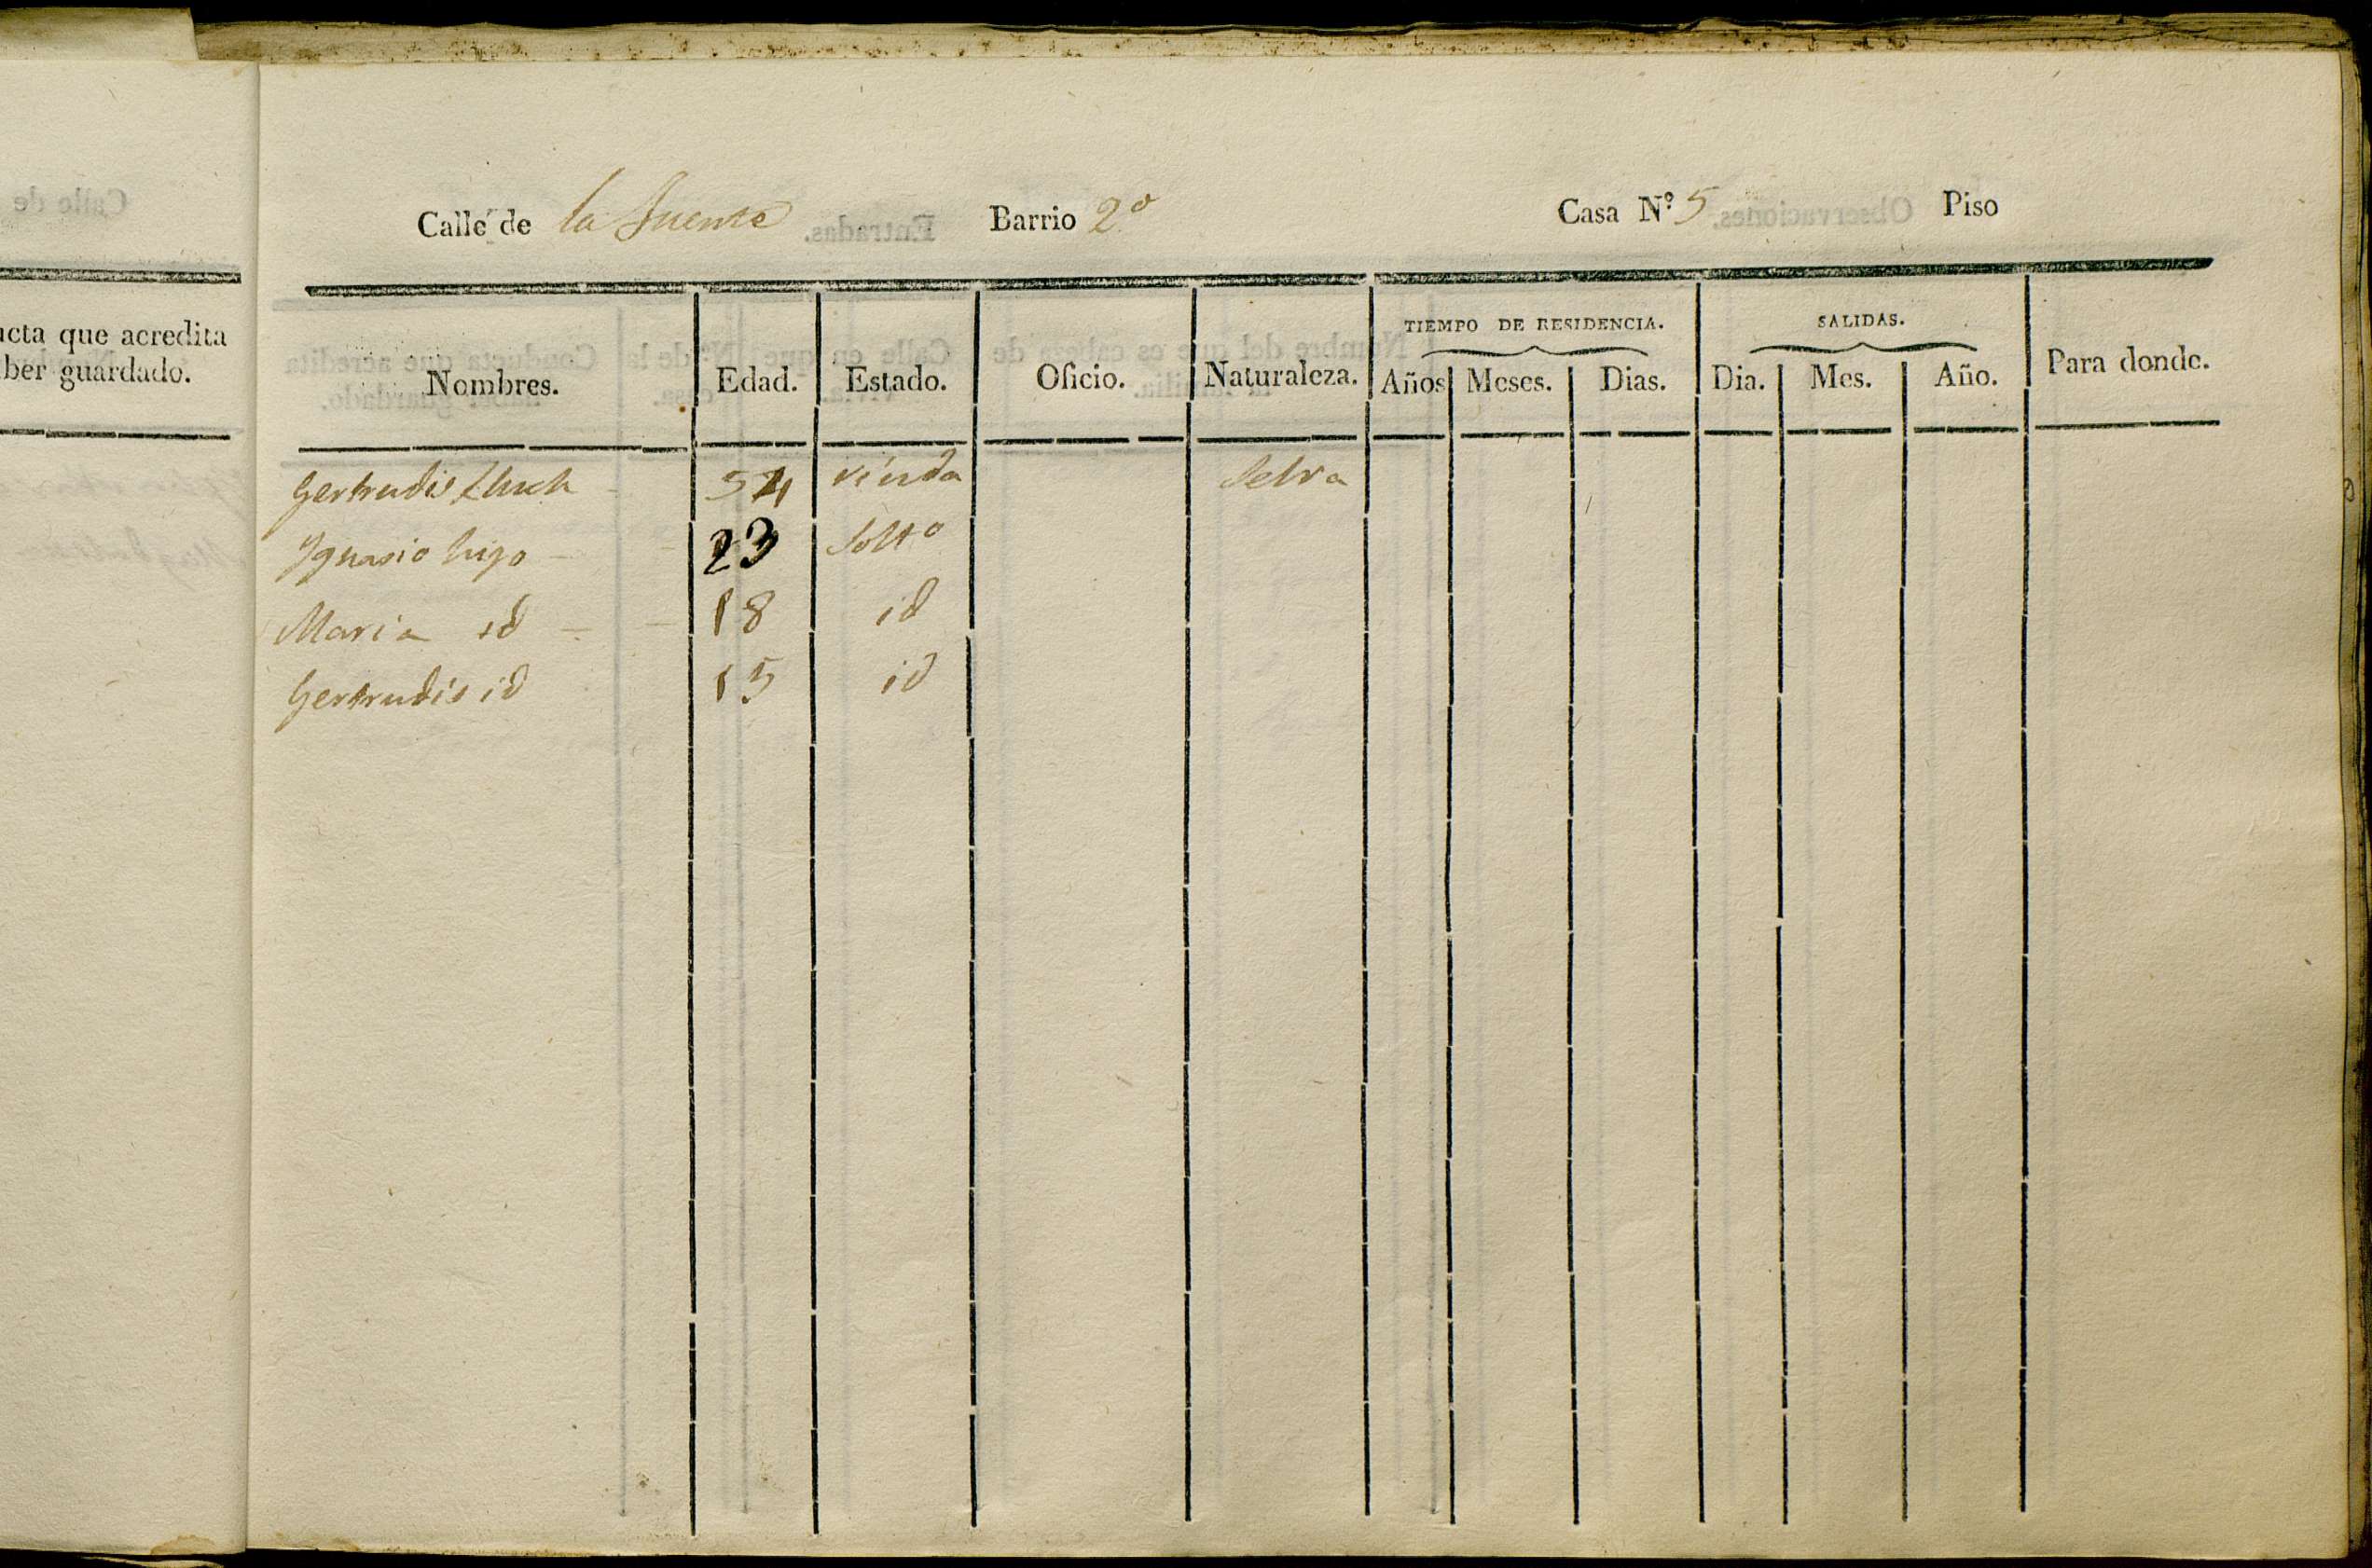 Calle de la fuente Barrio 2º Casa Nº 5 Piso
ucta que acredita
ber guardado.
TIEMPO DE RESIDENCIA. SALIDAS.
Nombres. Edad. Estado. Oficio. Naturaleza. Años Meses. Dias. Dia. Mes. Año. Para donde.
Gertrudis Lluch 54 viuda Selva
Ygnasio hijo 23 Soltº
Maria id 18 id
Gertrudis id 15 id